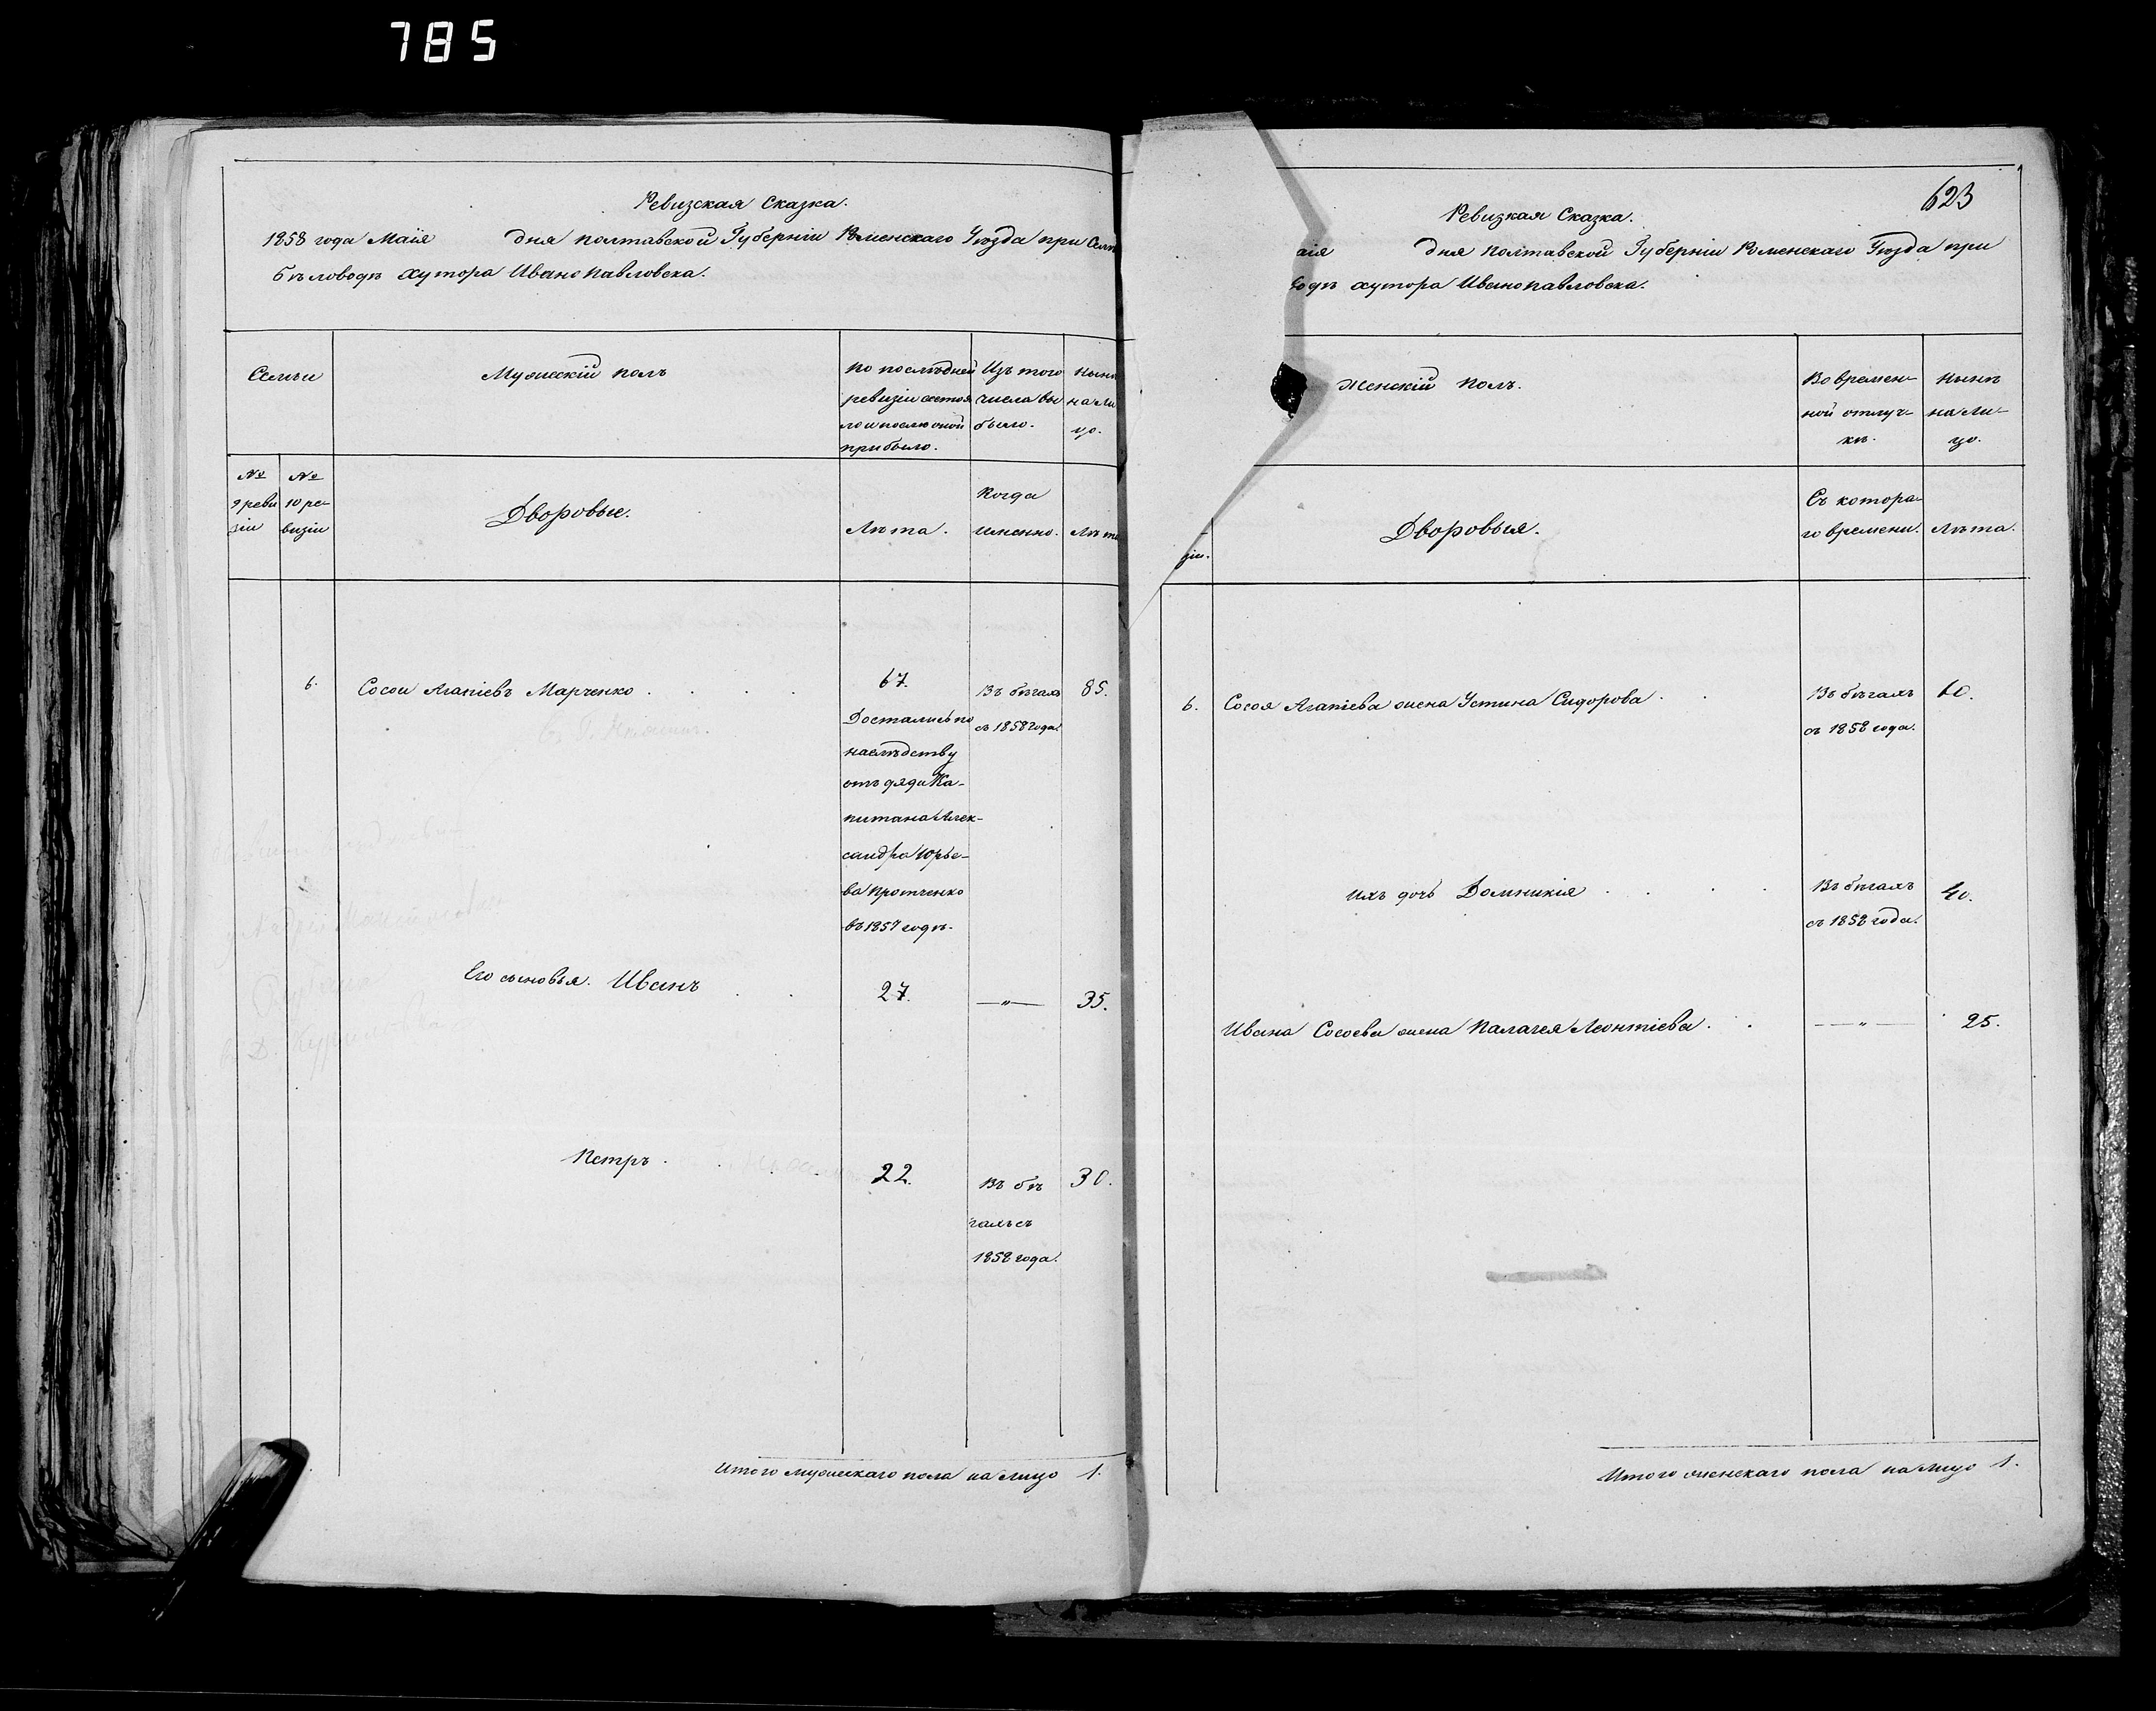 785
Ревизская Сказка.
1858 года Маія дня Полтавской Губерніи Роменскаго Уѣзда при Селѣ
Бѣловодѣ хутора Иванопавловска.
Семьи
Мужескій полъ
По послѣдней
ревизіи состоя
ло и послѣ оной
прибыло.
Изъ того
числа вы
было.
Нынѣ
на ли
цо.
№
9 реви
зіи
№
10 ре-
визіи
Дворовые.
Лѣта.
Когда
именно.
Лѣта
6.
Сосои Агапіевъ Марченко
67.
Достались по
наслѣдству
отъ дяди Ка-
питана Алек-
сандра Юрье-
ва Протченко
въ 1857 годѣ.
Въ бѣгахъ
съ 1858 года.
85.
Его сыновья. Иванъ
27.
—"—
35.
Петръ
22.
Въ бѣ
гахъ съ
1858 года.
30.
Итого мужескаго пола на лицо 1.
623
Ревизкая Сказка.
аія дня Полтавской Губерніи Роменскаго Уѣзда при
водѣ хутора Иванопавловска.
Женскій полъ.
Во времен-
ной отлуч-
кѣ.
Нынѣ
на ли-
цо.
зіи.
Дворовыя.
Съ котора-
го времени.
Лѣта.
6.
Сосоя Агапіева жена Устина Сидорова
Въ бѣгахъ
съ 1858 года.
60.
Ихъ дочь Домникія
Въ бѣгахъ
съ 1858 года.
40.
Ивана Сосоева жена Палагея Леонтіева
—"—
25.
Итого женскаго пола на лицо 1.